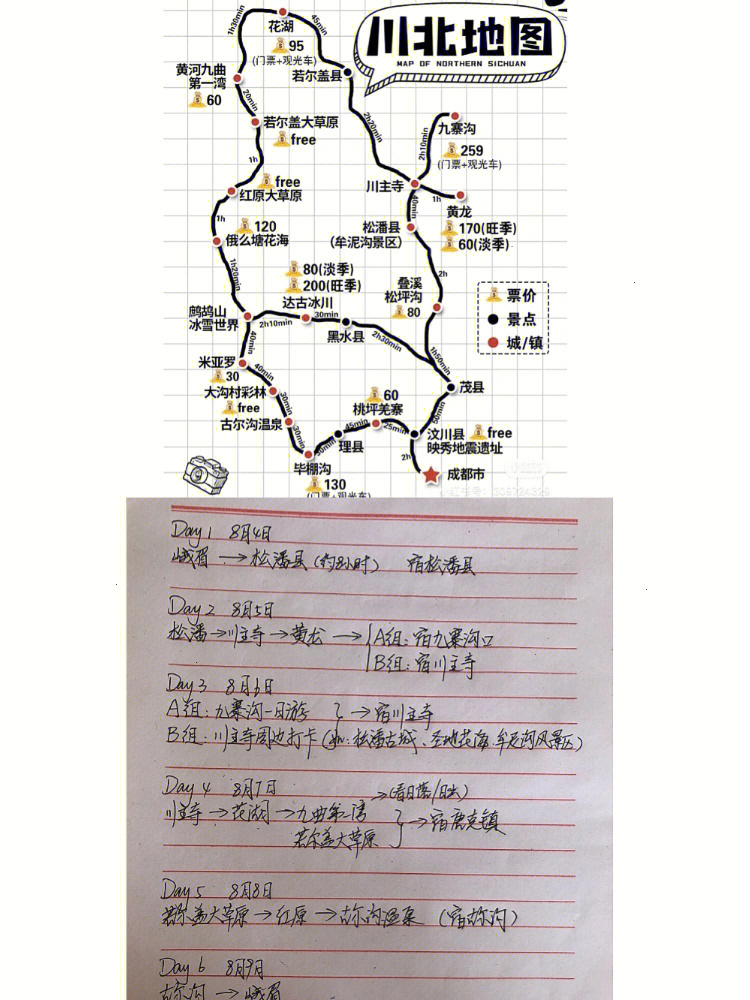 川北地图
MAP OF NORTHERN SICHUAN
花湖
95
(门票+观光车)
1h30min
45min
若尔盖县
黄河九曲
第一湾
60
20min
若尔盖大草原
free
1h
free
红原大草原
1h
120
俄么塘花海
1h20min
2h20min
九寨沟
259
(门票+观光车)
2h10min
川主寺
1h
黄龙
170(旺季)
60(淡季)
40min
松潘县
(牟泥沟景区)
2h
叠溪
松坪沟
80
1h50min
票价
景点
城/镇
80(淡季)
200(旺季)
达古冰川
鹧鸪山
冰雪世界
2h10min
30min
黑水县
2h30min
40min
米亚罗
30
40min
大沟村彩林
free
30min
古尔沟温泉
30min
毕棚沟
130
(门票+观光车)
理县
45min
60
桃坪羌寨
25min
茂县
50min
汶川县
映秀地震遗址
free
2h
成都市
Day1 8月4日
峨眉→松潘县(约8小时) 宿松潘县
Day2 8月5日
松潘→川主寺→黄龙→A组:宿九寨沟口
B组:宿川主寺
Day3 8月6日
A组:九寨沟一日游 }→宿川主寺
B组:川主寺周边打卡(如:松潘古城、圣地花海、牟尼沟风景区)
Day4 8月7日 →(看日落/日出)
川主寺→花湖→九曲第一湾 }→宿唐克镇
若尔盖大草原
Day5 8月8日
若尔盖大草原→红原→古尔沟温泉(宿古尔沟)
Day6 8月9日
古尔沟→峨眉